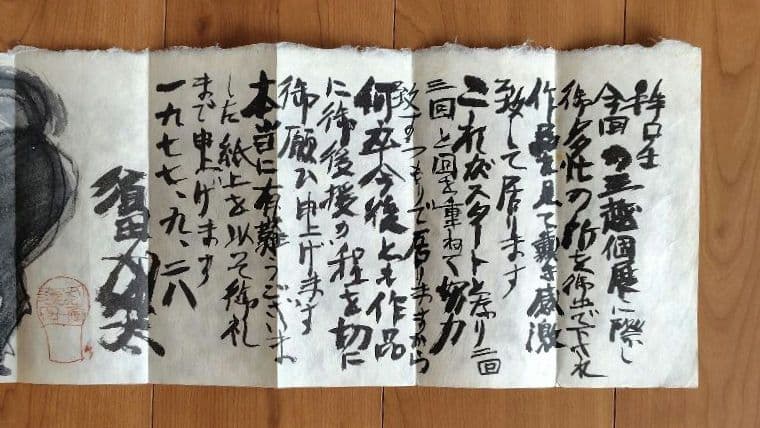 今回の三越個展に際し
御多忙の所を御出で下され
作品を見て戴き感激
致して居ります
これがスタートとなり二回
三回と回を重ねて努力
致すつもりで居りますから
何卒今後とも作品
に御後援の程を切に
御願ひ申上げます
本当に有難うございま
した 紙上を以て御礼
まで申上げます
一九七七、九、二八
須田